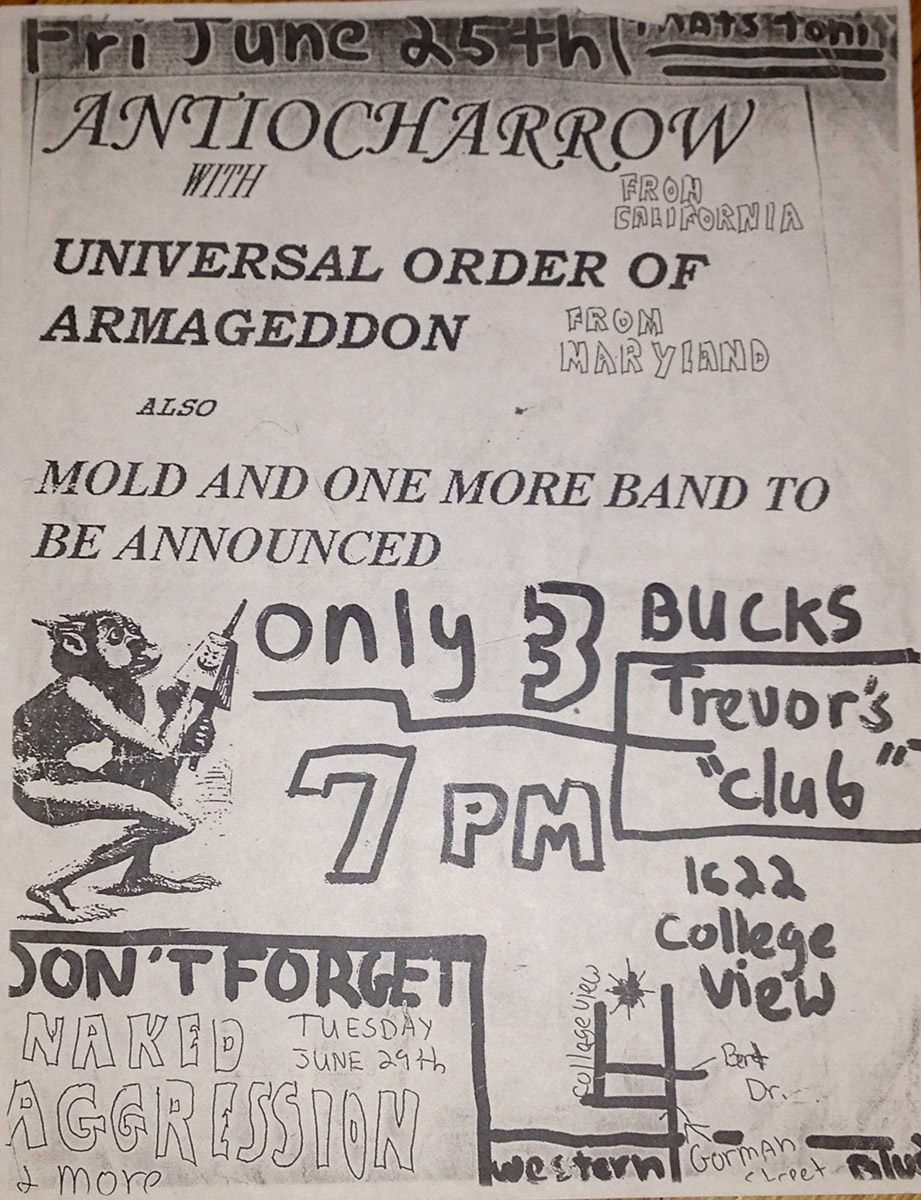 Fri June 25th (thats toni
ANTIOCHARROW
WITH
FROM
CALIFORNIA
UNIVERSAL ORDER OF
ARMAGEDDON
FROM
MARYLAND
ALSO
MOLD AND ONE MORE BAND TO
BE ANNOUNCED
only 3 BUCKS
Trevor's
"club"
7 PM
1622
College
View
DON'T FORGET
NAKED
TUESDAY
JUNE 29th
AGGRESSION
& more
College View
Dr.
Gorman
Street
Western Blvd